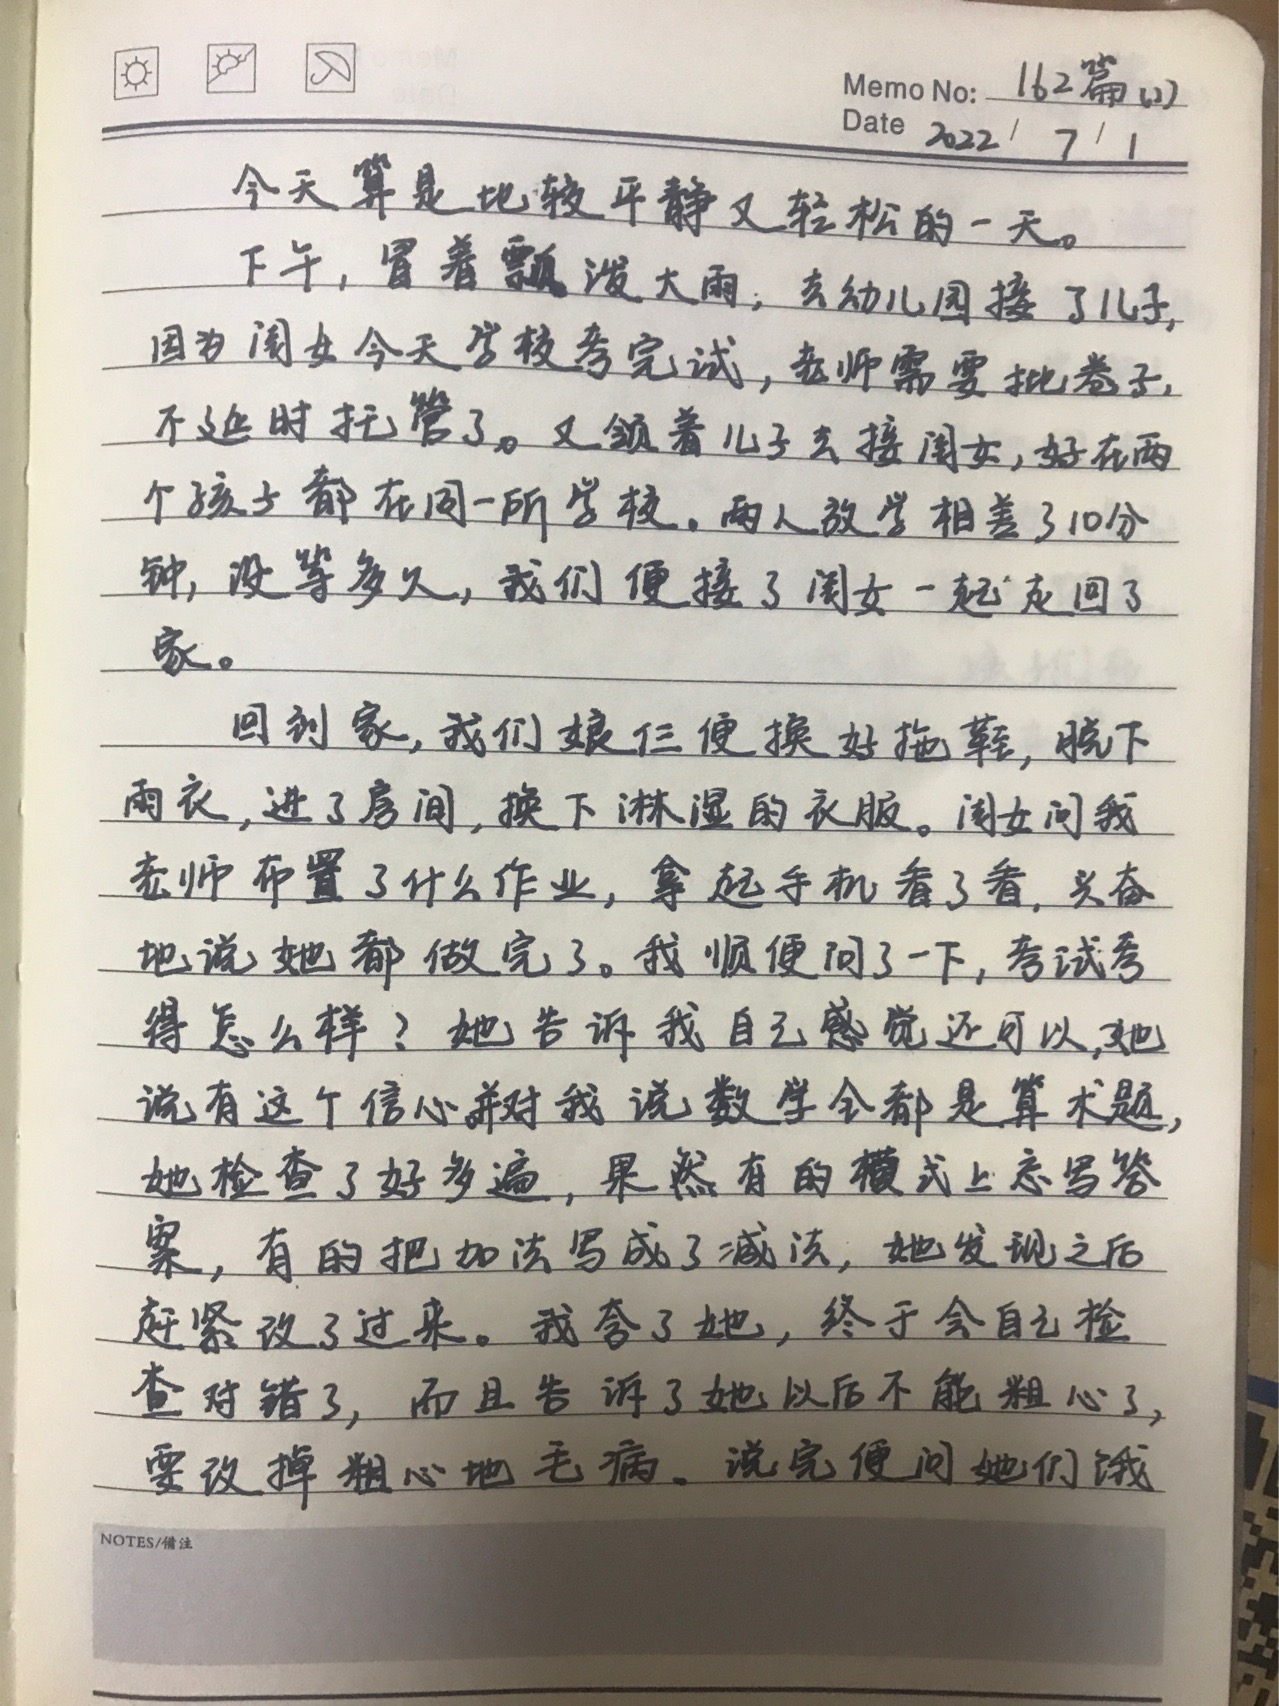 Memo No: 162篇(1)
Date 2022/7/1
今天算是地较平静又轻松的一天。
下午，冒着瓢泼大雨，去幼儿园接了儿子，
因为闺女今天学校考完试，老师需要批卷子，
不延时托管了。又领着儿子去接闺女，好在两
个孩子都在同一所学校。两人放学相差了10分
钟，没等多久，我们便接了闺女一起走回了
家。
回到家，我们娘仨便换好拖鞋，脱下
雨衣，进了房间，换下淋湿的衣服。闺女问我
老师布置了什么作业，拿起手机看了看，兴奋
地说她都做完了。我顺便问了一下，考试考
得怎么样？她告诉我自己感觉还可以，她
说有这个信心并对我说数学全都是算术题，
她检查了好多遍，果然有的横式上忘写答
案，有的把加法写成了减法，她发现之后
赶紧改了过来。我夸了她，终于会自己检
查对错了，而且告诉了她以后不能粗心了，
要改掉粗心地毛病。说完便问她们饿
NOTES/備注